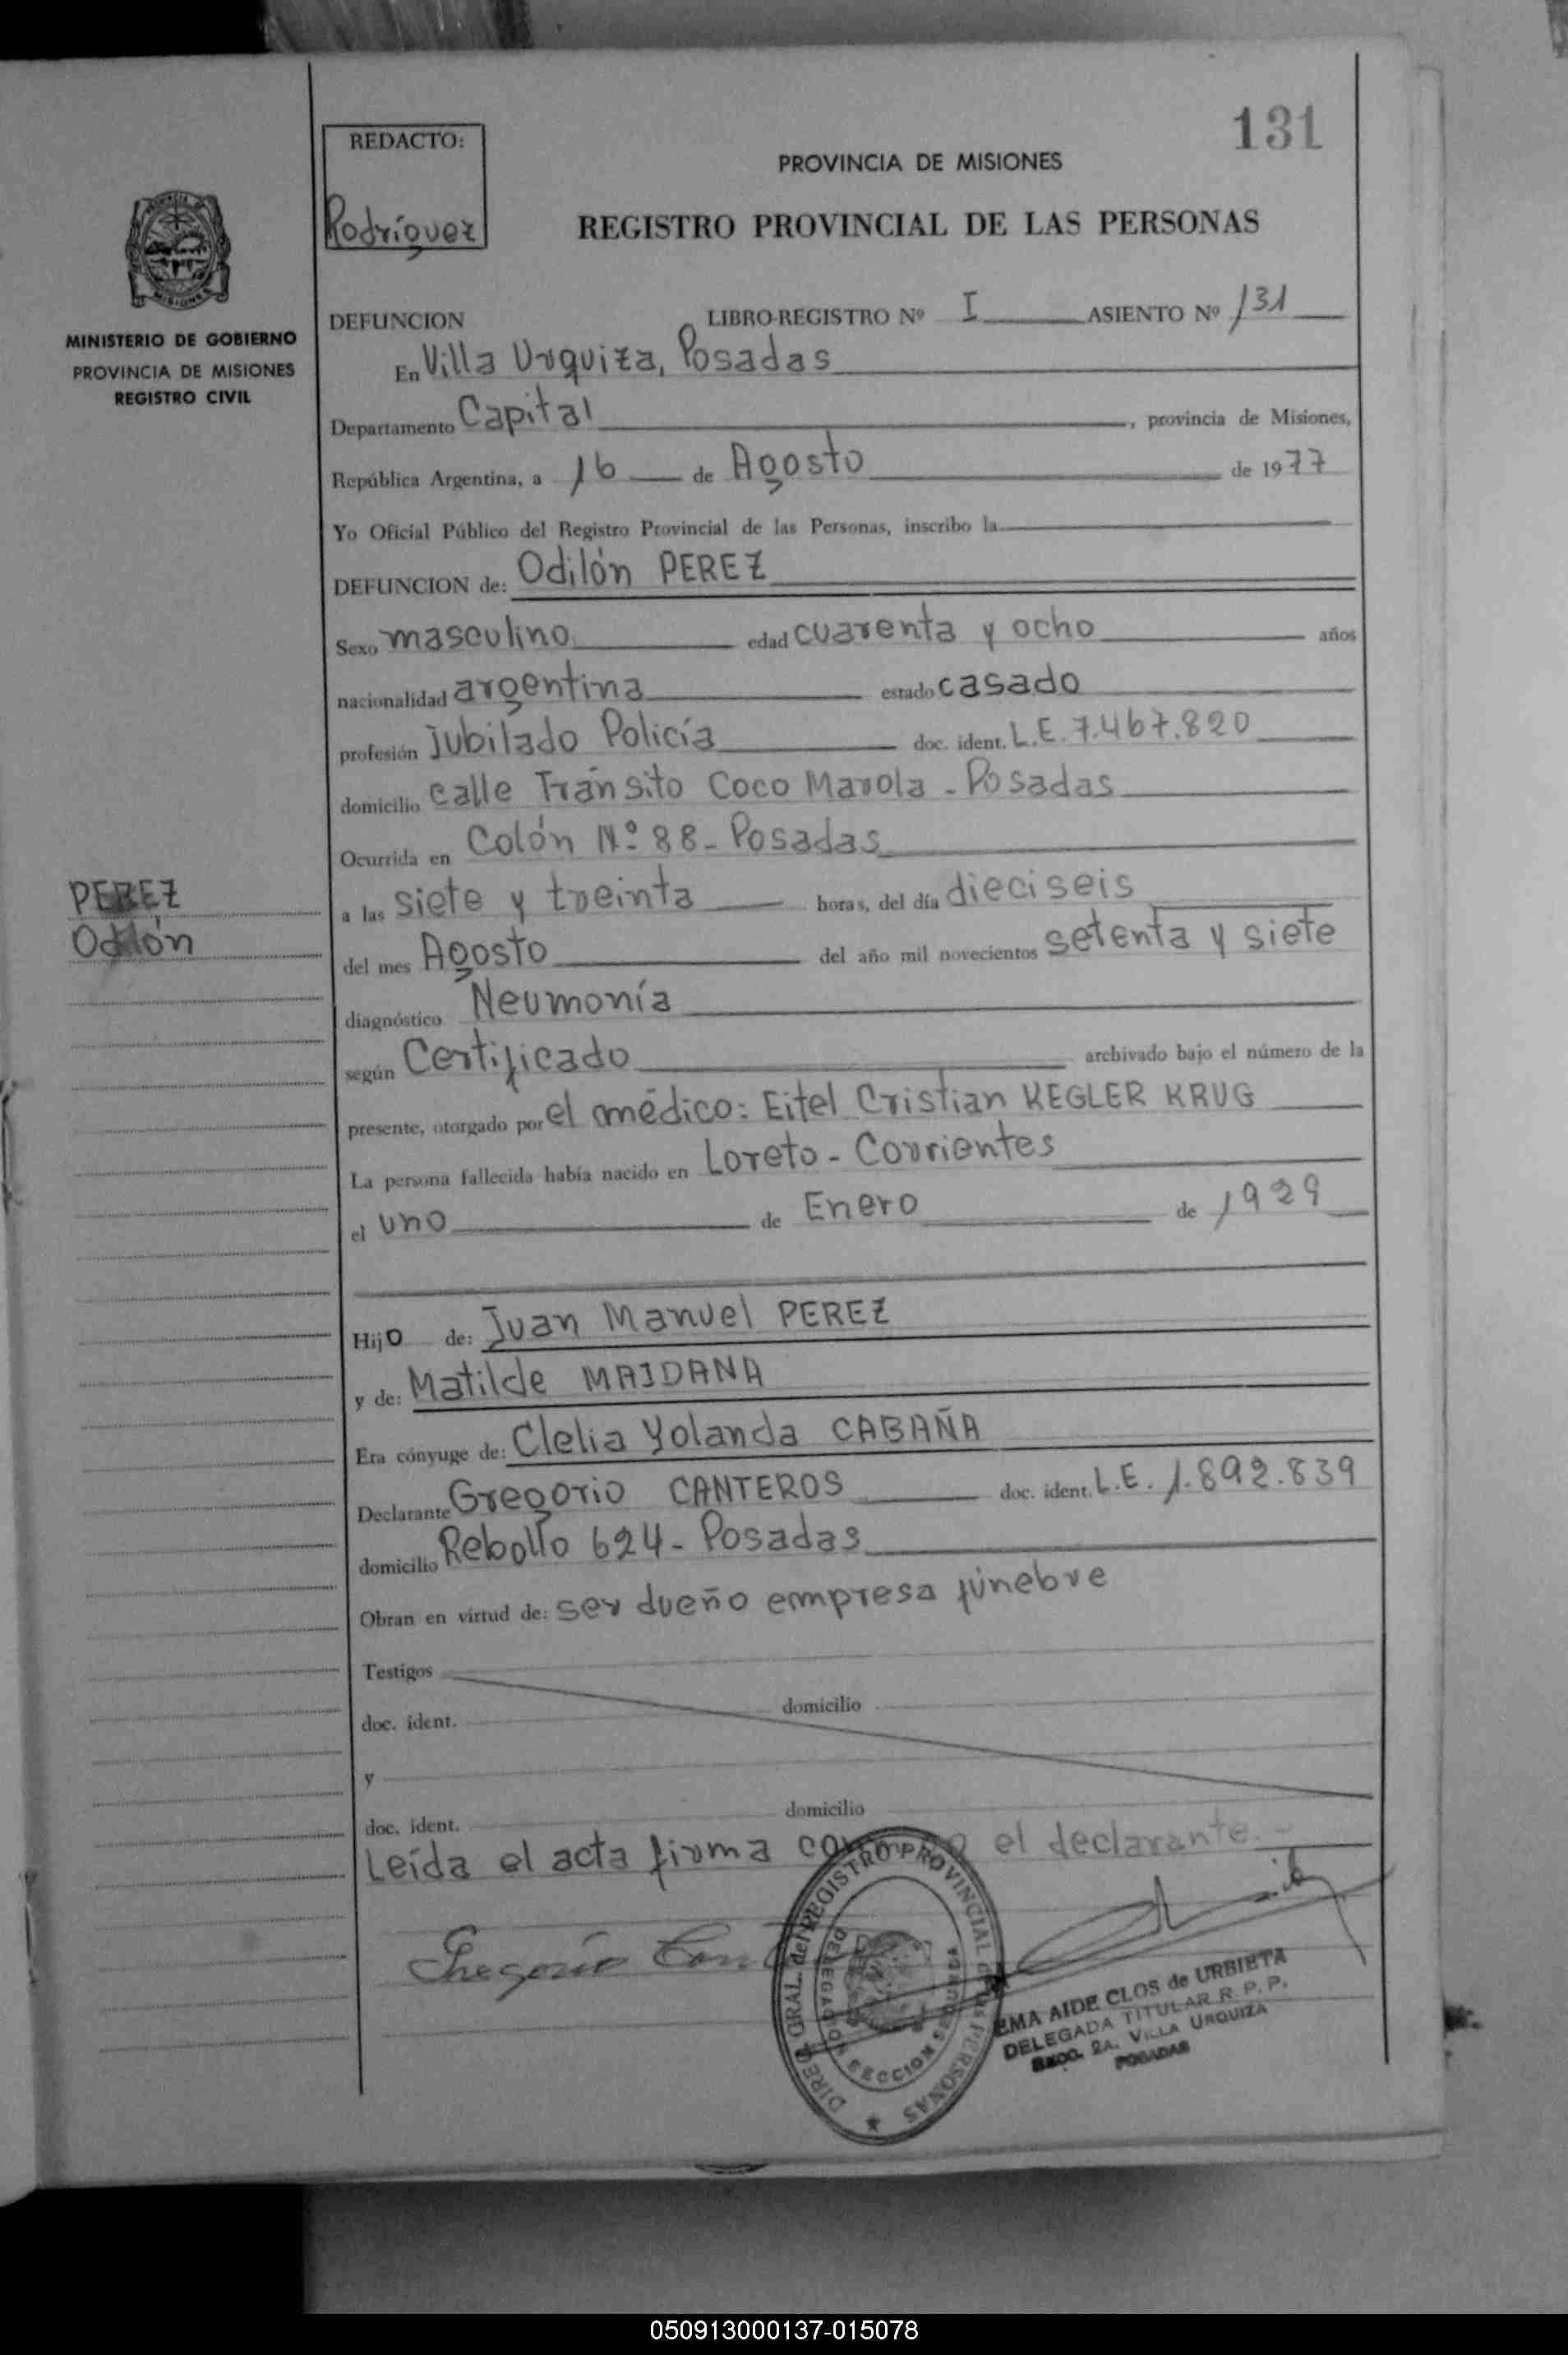 131
REDACTO:
Rodríguez
PROVINCIA DE MISIONES
REGISTRO PROVINCIAL DE LAS PERSONAS
MISIONES
MINISTERIO DE GOBIERNO
PROVINCIA DE MISIONES
REGISTRO CIVIL
DEFUNCION LIBRO-REGISTRO Nº I ASIENTO Nº 131
En Villa Urquiza, Posadas
Departamento Capital, provincia de Misiones,
República Argentina, a 16 de Agosto de 1977
Yo Oficial Público del Registro Provincial de las Personas, inscribo la
DEFUNCION de: Odilón PEREZ
Sexo masculino edad cuarenta y ocho años
nacionalidad argentina estado casado
profesión jubilado Policía doc. ident. L.E. 7.467.820
domicilio calle Tránsito Coco Marola - Posadas
Ocurrida en Colón Nº 88 - Posadas
PEREZ
Odilón
a las siete y treinta horas, del día dieciseis
del mes Agosto del año mil novecientos setenta y siete
diagnóstico Neumonía
según Certificado archivado bajo el número de la
presente, otorgado por el médico: Eitel Cristian KEGLER KRUG
La persona fallecida había nacido en Loreto - Corrientes
el uno de Enero de 1929
Hijo de: Juan Manuel PEREZ
y de: Matilde MAIDANA
Era cónyuge de: Clelia Yolanda CABAÑA
Declarante Gregorio CANTEROS doc. ident. L.E. 1.892.839
domicilio Rebollo 624 - Posadas
Obran en virtud de: ser dueño empresa fúnebre
Testigos
doc. ident. domicilio
y
doc. ident. domicilio
Leída el acta firma el declarante.-
Gregorio
DIREC. GRAL. del REGISTRO PROVINCIAL de las PERSONAS
DELEGACION SECCION
EMA AIDE CLOS de URBIETA
DELEGADA TITULAR R. P. P.
SECC. 2A. VILLA URQUIZA
POSADAS
050913000137-015078